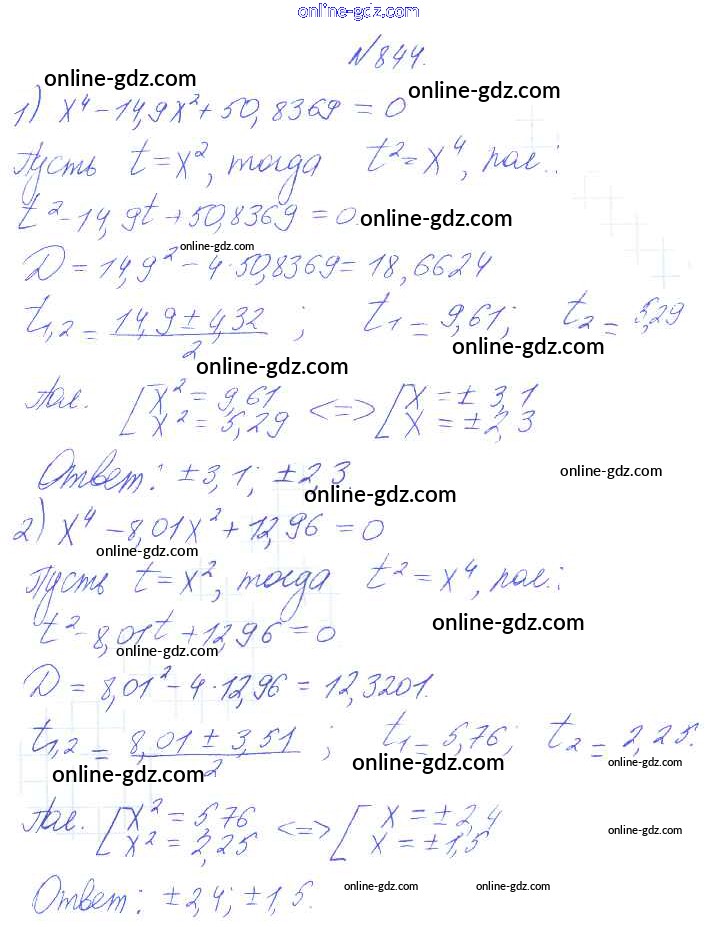 online-gdz.com
№844.
online-gdz.com online-gdz.com
1) x⁴ - 14,9x² + 50,8369 = 0
Пусть t = x², тогда t² = x⁴, пол.:
t² - 14,9t + 50,8369 = 0. online-gdz.com
online-gdz.com
D = 14,9² - 4·50,8369 = 18,6624
t₁,₂ = (14,9 ± 4,32)/2 ; t₁ = 9,61; t₂ = 5,29
online-gdz.com
online-gdz.com
Пол. [x² = 9,61 <=> [x = ± 3,1
x² = 5,29 x = ± 2,3
Ответ: ±3,1; ±2,3.
online-gdz.com
online-gdz.com
2) x⁴ - 8,01x² + 12,96 = 0
online-gdz.com
Пусть t = x², тогда t² = x⁴, пол.:
t² - 8,01t + 12,96 = 0
online-gdz.com
online-gdz.com
D = 8,01² - 4·12,96 = 12,3201.
t₁,₂ = (8,01 ± 3,51)/2 ; t₁ = 5,76; t₂ = 2,25.
online-gdz.com online-gdz.com online-gdz.com
Пол. [x² = 5,76 <=> [x = ±2,4
x² = 2,25 x = ±1,5
online-gdz.com
Ответ: ±2,4; ±1,5.
online-gdz.com online-gdz.com